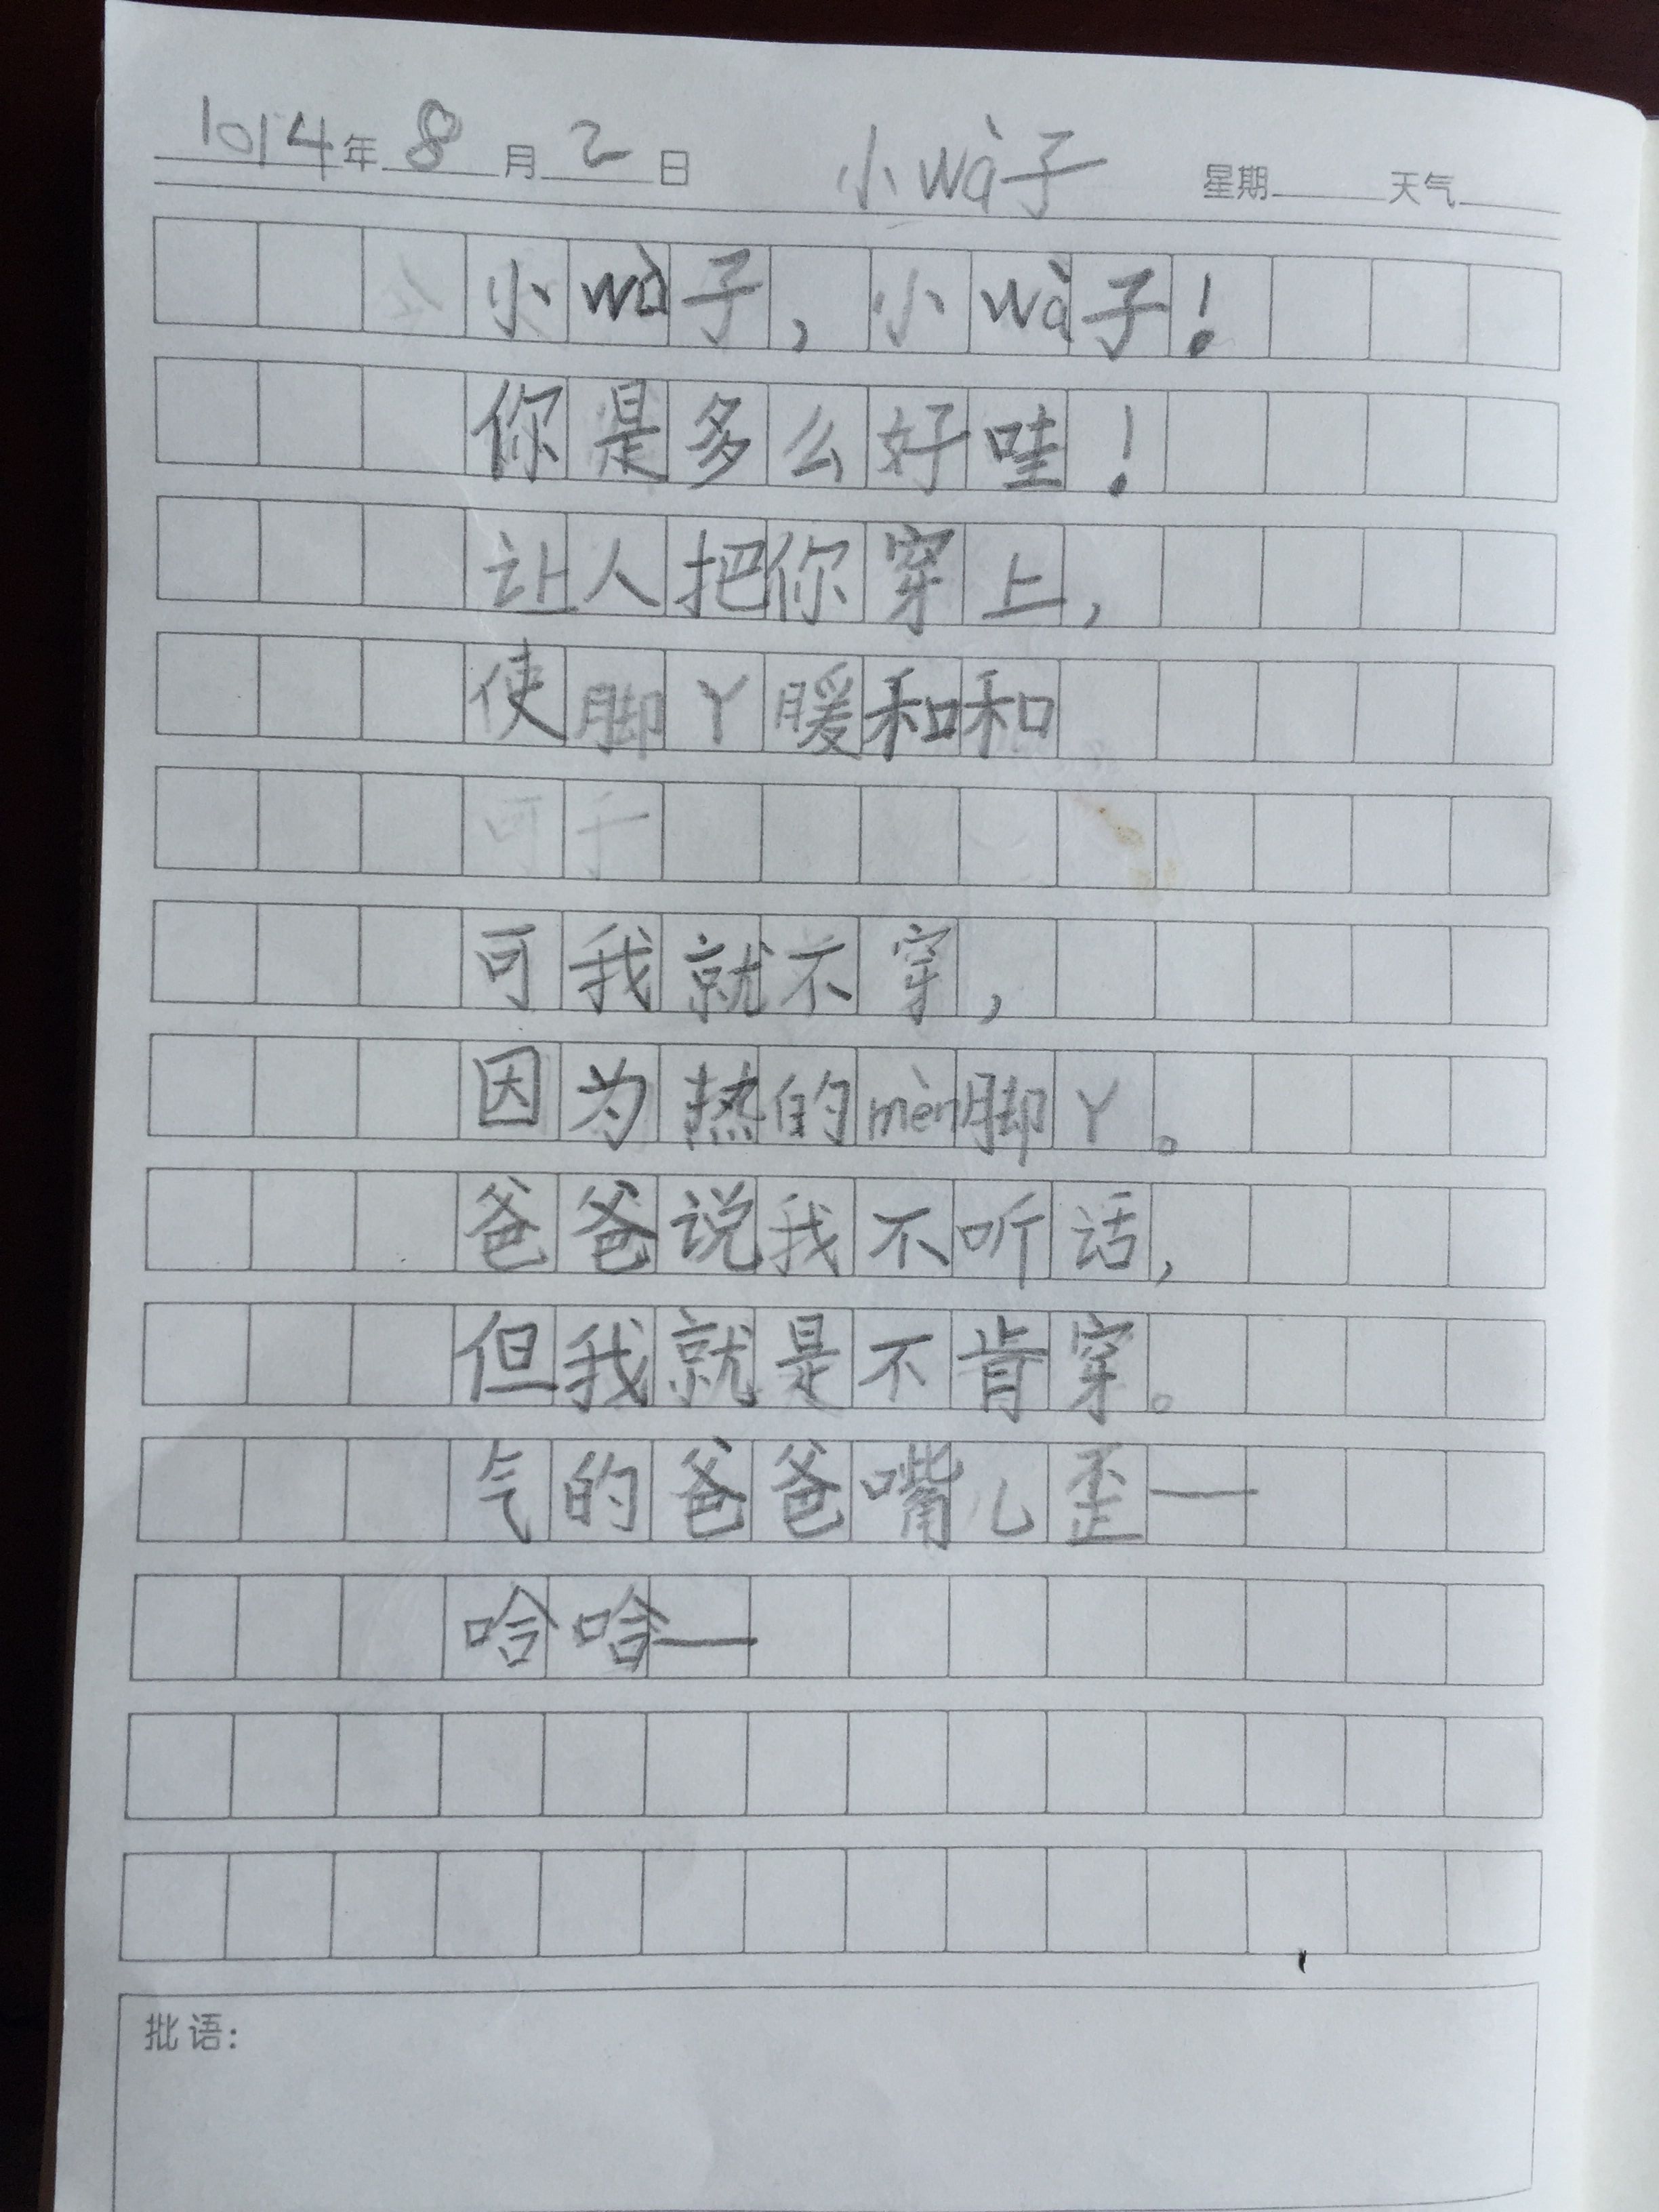 1014年8月2日 小wà子 星期 天气
小wà子,小wà子!
你是多么好哇!
让人把你穿上,
使脚丫暖和和
可
可我就不穿,
因为热的mèn脚丫。
爸爸说我不听话,
但我就是不肯穿。
气的爸爸嘴儿歪—
哈哈—
批语: